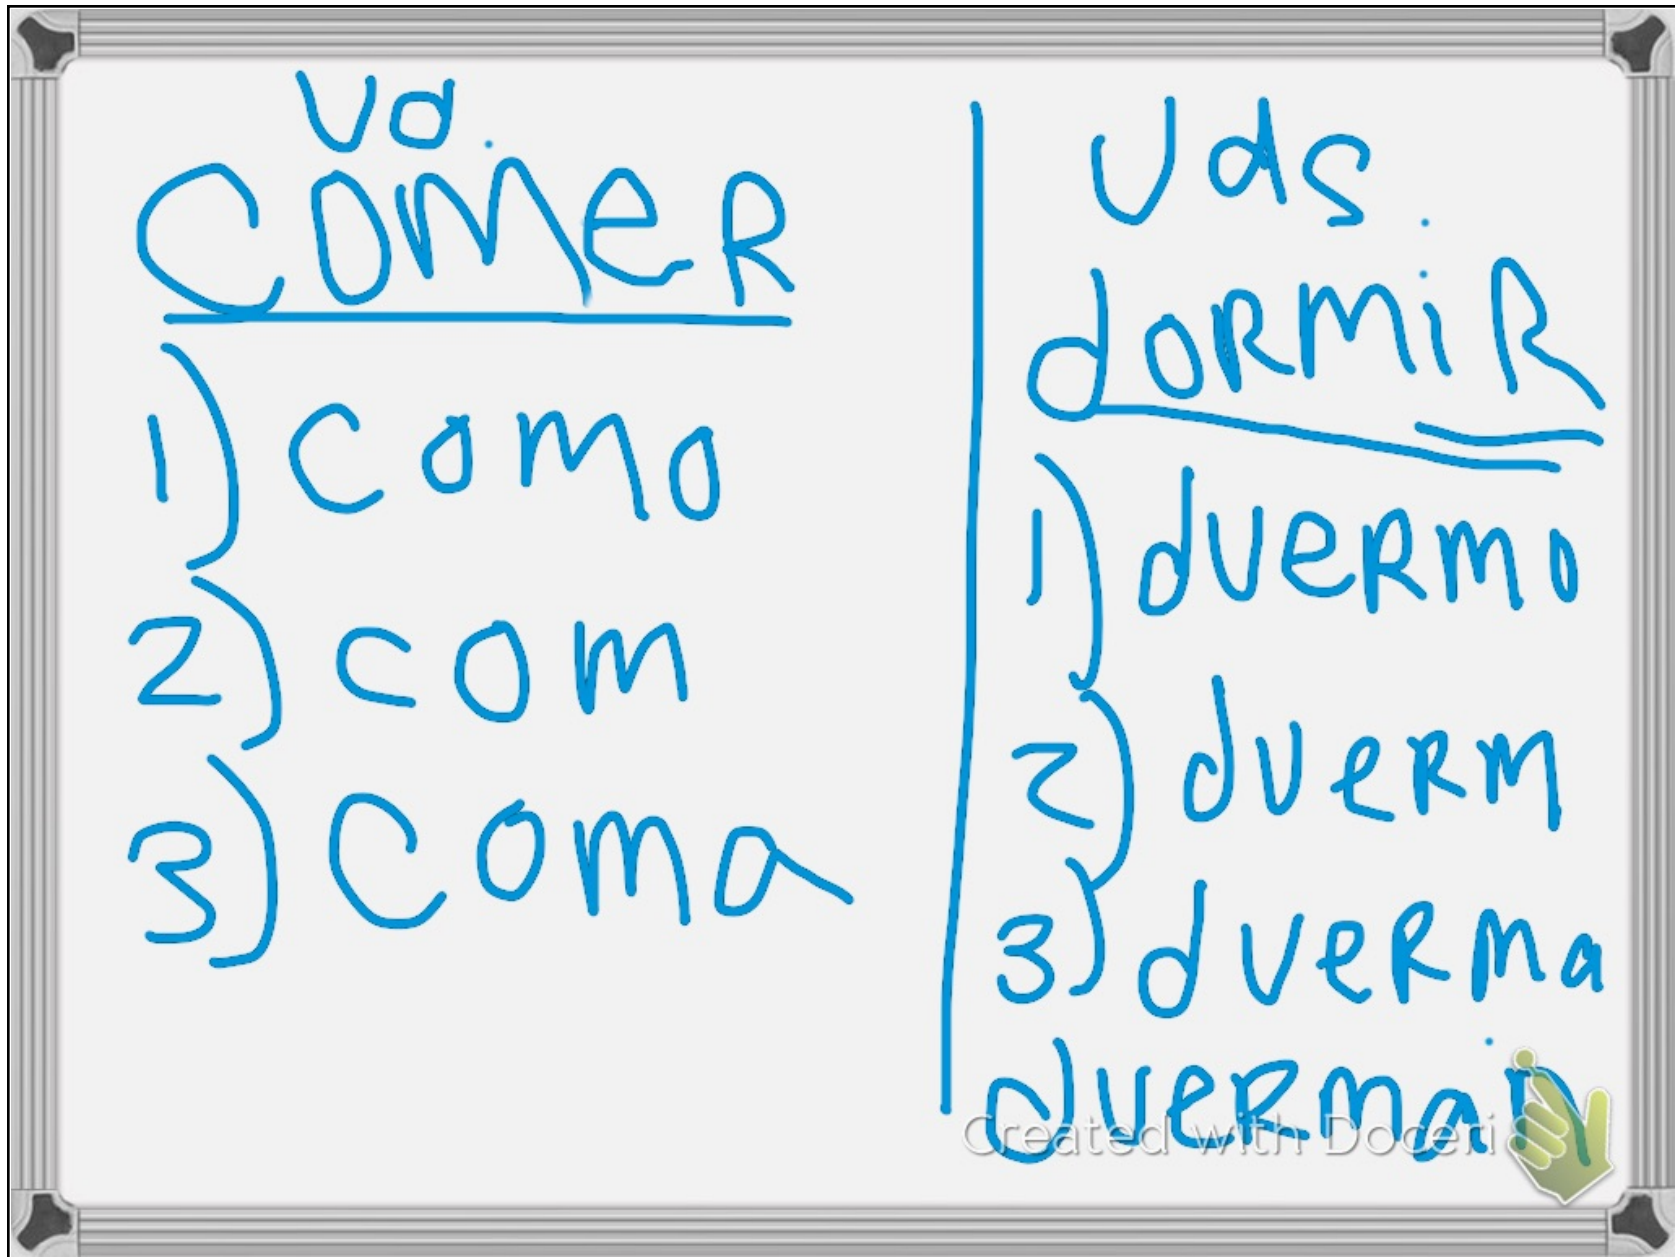 Vd.
COMeR
1) como
2) com
3) Coma
Uds.
doRMiR
1) dueRmo
2) dueRm
3) dueRma
dueRman
Created with Doceri